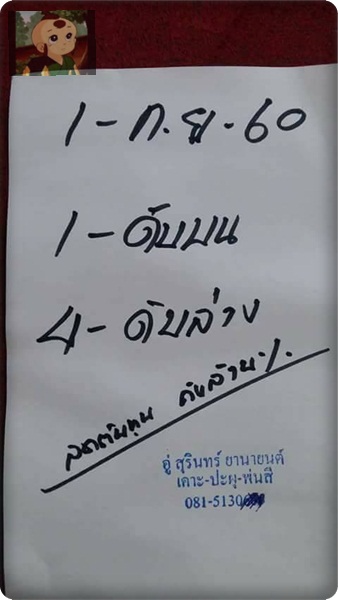 1-ก.ย.60
1-ดับบน
4-ดับล่าง
ลดต้นทุน ดับล้าน%.
อู่ สุรินทร์ ยานายนต์
เคาะ-ปะผุ-พ่นสี
081-5130